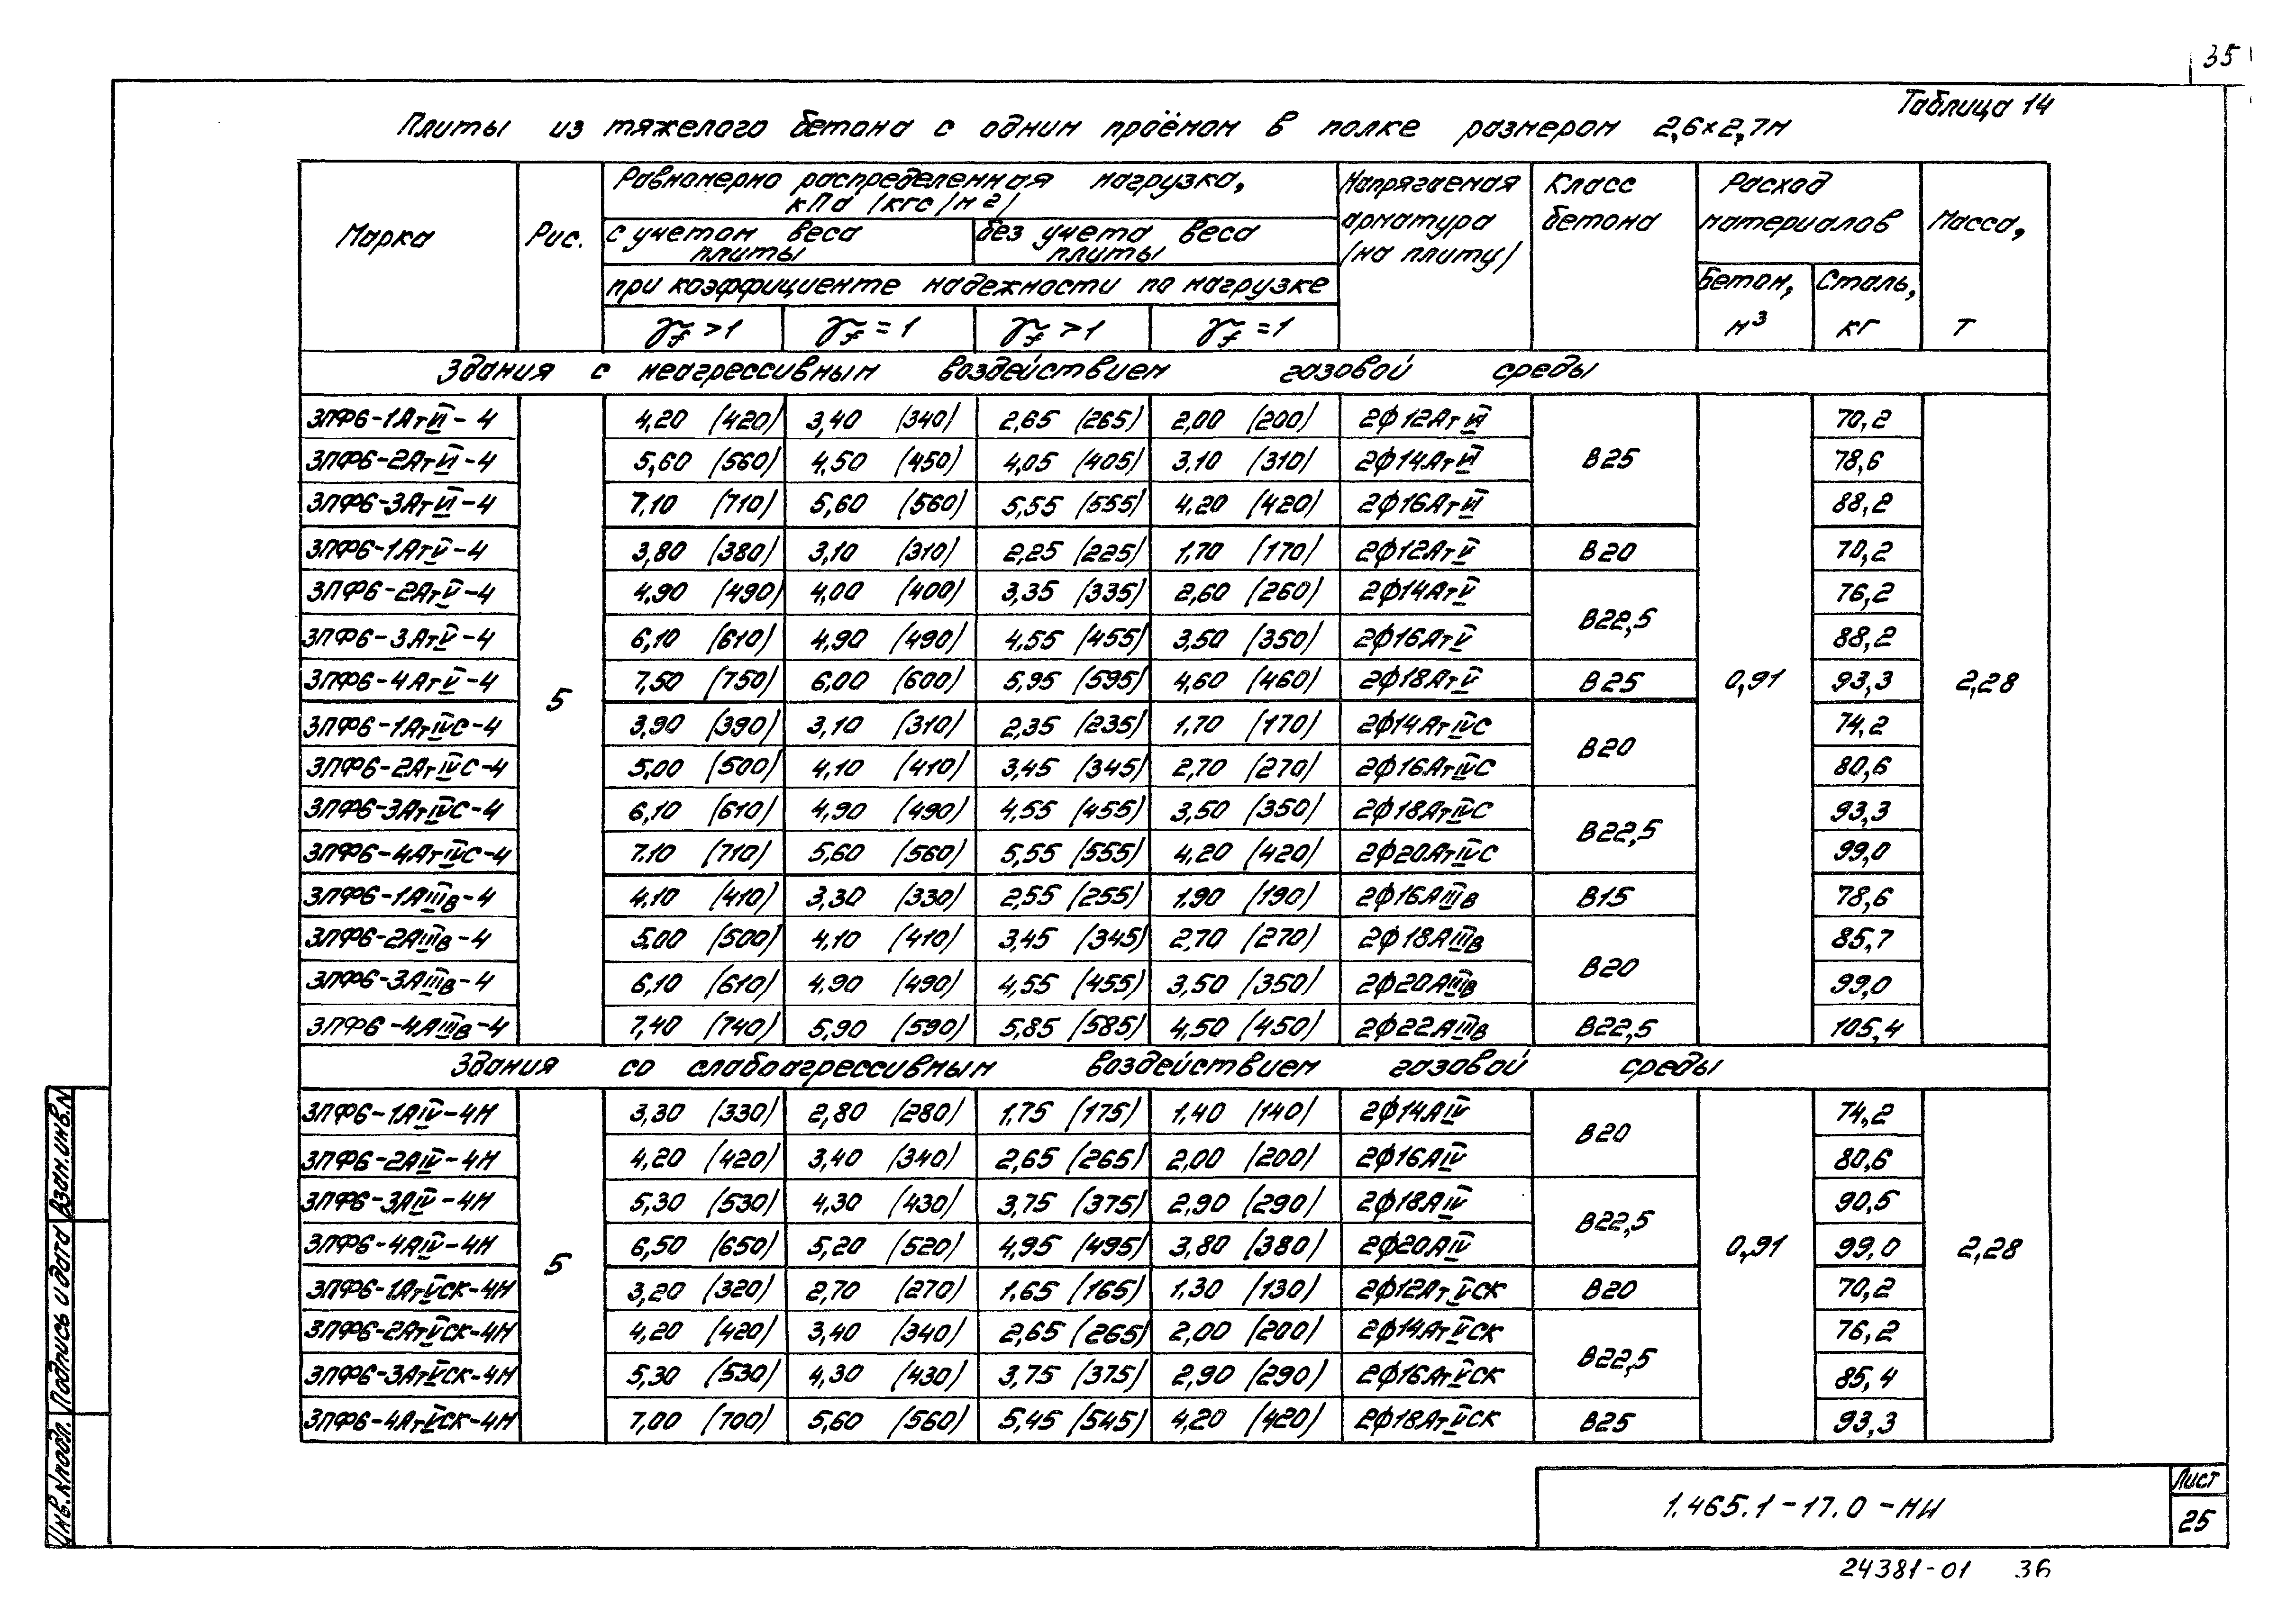 35
Таблица 14
Плиты из тяжелого бетона с одним проёмом в полке размером 2,6×2,7м
Марка Рис. Равномерно распределенная нагрузка, кПа (кгс/м2) Напрягаемая арматура (на плиту) Класс бетона Расход материалов Масса, т
с учетом веса плиты без учета веса плиты
при коэффициенте надежности по нагрузке Бетон, м³ Сталь, кг
γf >1 γf =1 γf >1 γf =1
Здания с неагрессивным воздействием газовой среды
3ПФ6-1АтVI-4 4,20 (420) 3,40 (340) 2,65 (265) 2,00 (200) 2ф12АтVI 70,2
3ПФ6-2АтVI-4 5,60 (560) 4,50 (450) 4,05 (405) 3,10 (310) 2ф14АтVI В25 78,6
3ПФ6-3АтVI-4 7,10 (710) 5,60 (560) 5,55 (555) 4,20 (420) 2ф16АтVI 88,2
3ПФ6-1АтV-4 3,80 (380) 3,10 (310) 2,25 (225) 1,70 (170) 2ф12АтV В20 70,2
3ПФ6-2АтV-4 4,90 (490) 4,00 (400) 3,35 (335) 2,60 (260) 2ф14АтV 76,2
В22,5
3ПФ6-3АтV-4 6,10 (610) 4,90 (490) 4,55 (455) 3,50 (350) 2ф16АтV 88,2
3ПФ6-4АтV-4 5 7,50 (750) 6,00 (600) 5,95 (595) 4,60 (460) 2ф18АтV В25 0,91 93,3 2,28
3ПФ6-1АтIVС-4 3,90 (390) 3,10 (310) 2,35 (235) 1,70 (170) 2ф14АтIVС 74,2
В20
3ПФ6-2АтIVС-4 5,00 (500) 4,10 (410) 3,45 (345) 2,70 (270) 2ф16АтIVС 80,6
3ПФ6-3АтIVС-4 6,10 (610) 4,90 (490) 4,55 (455) 3,50 (350) 2ф18АтIVС 93,3
В22,5
3ПФ6-4АтIVС-4 7.10 (710) 5,60 (560) 5,55 (555) 4,20 (420) 2ф20АтIVС 99,0
3ПФ6-1АIIIв-4 4,10 (410) 3,30 (330) 2,55 (255) 1.90 (190) 2ф16АIIIв В15 78,6
3ПФ6-2АIIIв-4 5,00 (500) 4,10 (410) 3,45 (345) 2,70 (270) 2ф18АIIIв 85,7
В20
3ПФ6-3АIIIв-4 6,10 (610) 4,90 (490) 4,55 (455) 3,50 (350) 2ф20АIIIв 99,0
3ПФ6-4АIIIв-4 7,40 (740) 5,90 (590) 5,85 (585) 4,50 (450) 2ф22АIIIв В22,5 105,4
Здания со слабоагрессивным воздействием газовой среды
3ПФ6-1АIV-4Н 3,30 (330) 2,80 (280) 1,75 (175) 1.40 (140) 2ф14АIV 74,2
В20
3ПФ6-2АIV-4Н 4,20 (420) 3,40 (340) 2,65 (265) 2,00 (200) 2ф16АIV 80,6
3ПФ6-3АIV-4Н 5,30 (530) 4,30 (430) 3,75 (375) 2,90 (290) 2ф18АIV 90,5
В22,5
3ПФ6-4АIV-4Н 5 6,50 (650) 5,20 (520) 4,95 (495) 3,80 (380) 2ф20АIV 0,91 99,0 2,28
3ПФ6-1АтVСК-4Н 3,20 (320) 2,70 (270) 1.65 (165) 1.30 (130) 2ф12АтVСК В20 70,2
3ПФ6-2АтVСК-4Н 4,20 (420) 3,40 (340) 2,65 (265) 2,00 (200) 2ф14АтVСК 76,2
В22,5
3ПФ6-3АтVСК-4Н 5,30 (530) 4,30 (430) 3,75 (375) 2,90 (290) 2ф16АтVСК 85,4
3ПФ6-4АтVСК-4Н 7,00 (700) 5,60 (560) 5,45 (545) 4,20 (420) 2ф18АтVСК В25 93,3
Инв.№подл. Подпись и дата Взам.инв.№
1.465.1-17.0-МИ
Лист
25
24381-01 36